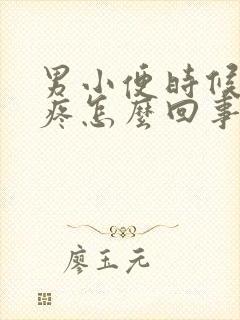 男小便時候
疼怎麼回事
廖玉元